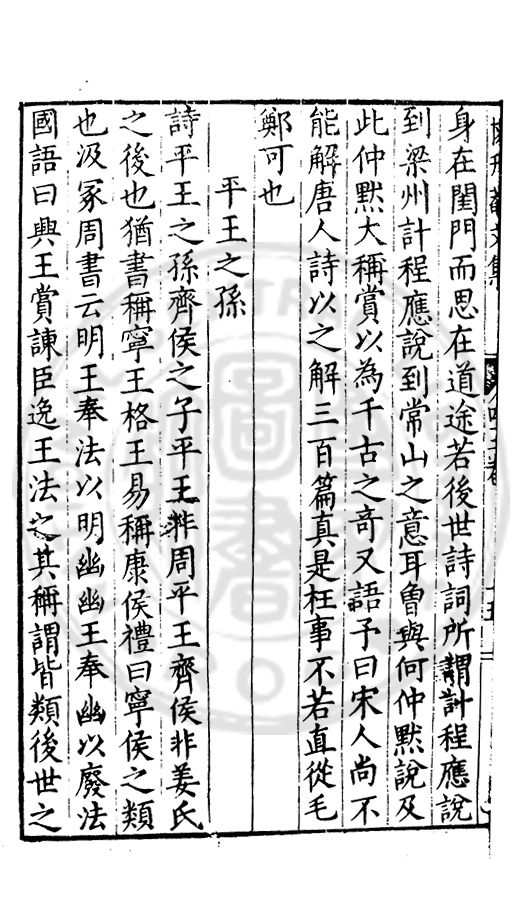 身在閨門而思在道途若後世詩詞所謂計程應說
到梁州計程應說到常山之意耳曾與何仲默說及
此仲默大稱賞以為千古之奇又語予曰宋人尚不
能解唐人詩以之解三百篇真是枉事不若直從毛
鄭可也
平王之孫
詩平王之孫齊侯之子平王非周平王齊侯非姜氏
之後也猶書稱寧王格王易稱康侯禮曰寧侯之類
也汲冢周書云明王奉法以明幽幽王奉幽以廢法
國語曰興王賞諫臣逸王法之其稱謂皆類後世之